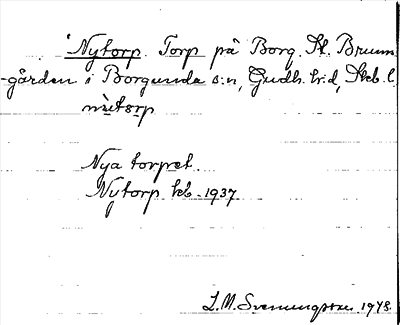 'Nytorp. Torp på Borg. St. Brunn
-gården i Borgunda s:n, Gudh. hr:d, Skb. l.
nỳtårp
Nya torpet.
Nytorp kb. 1937
S.M. Svenungsson 1948.